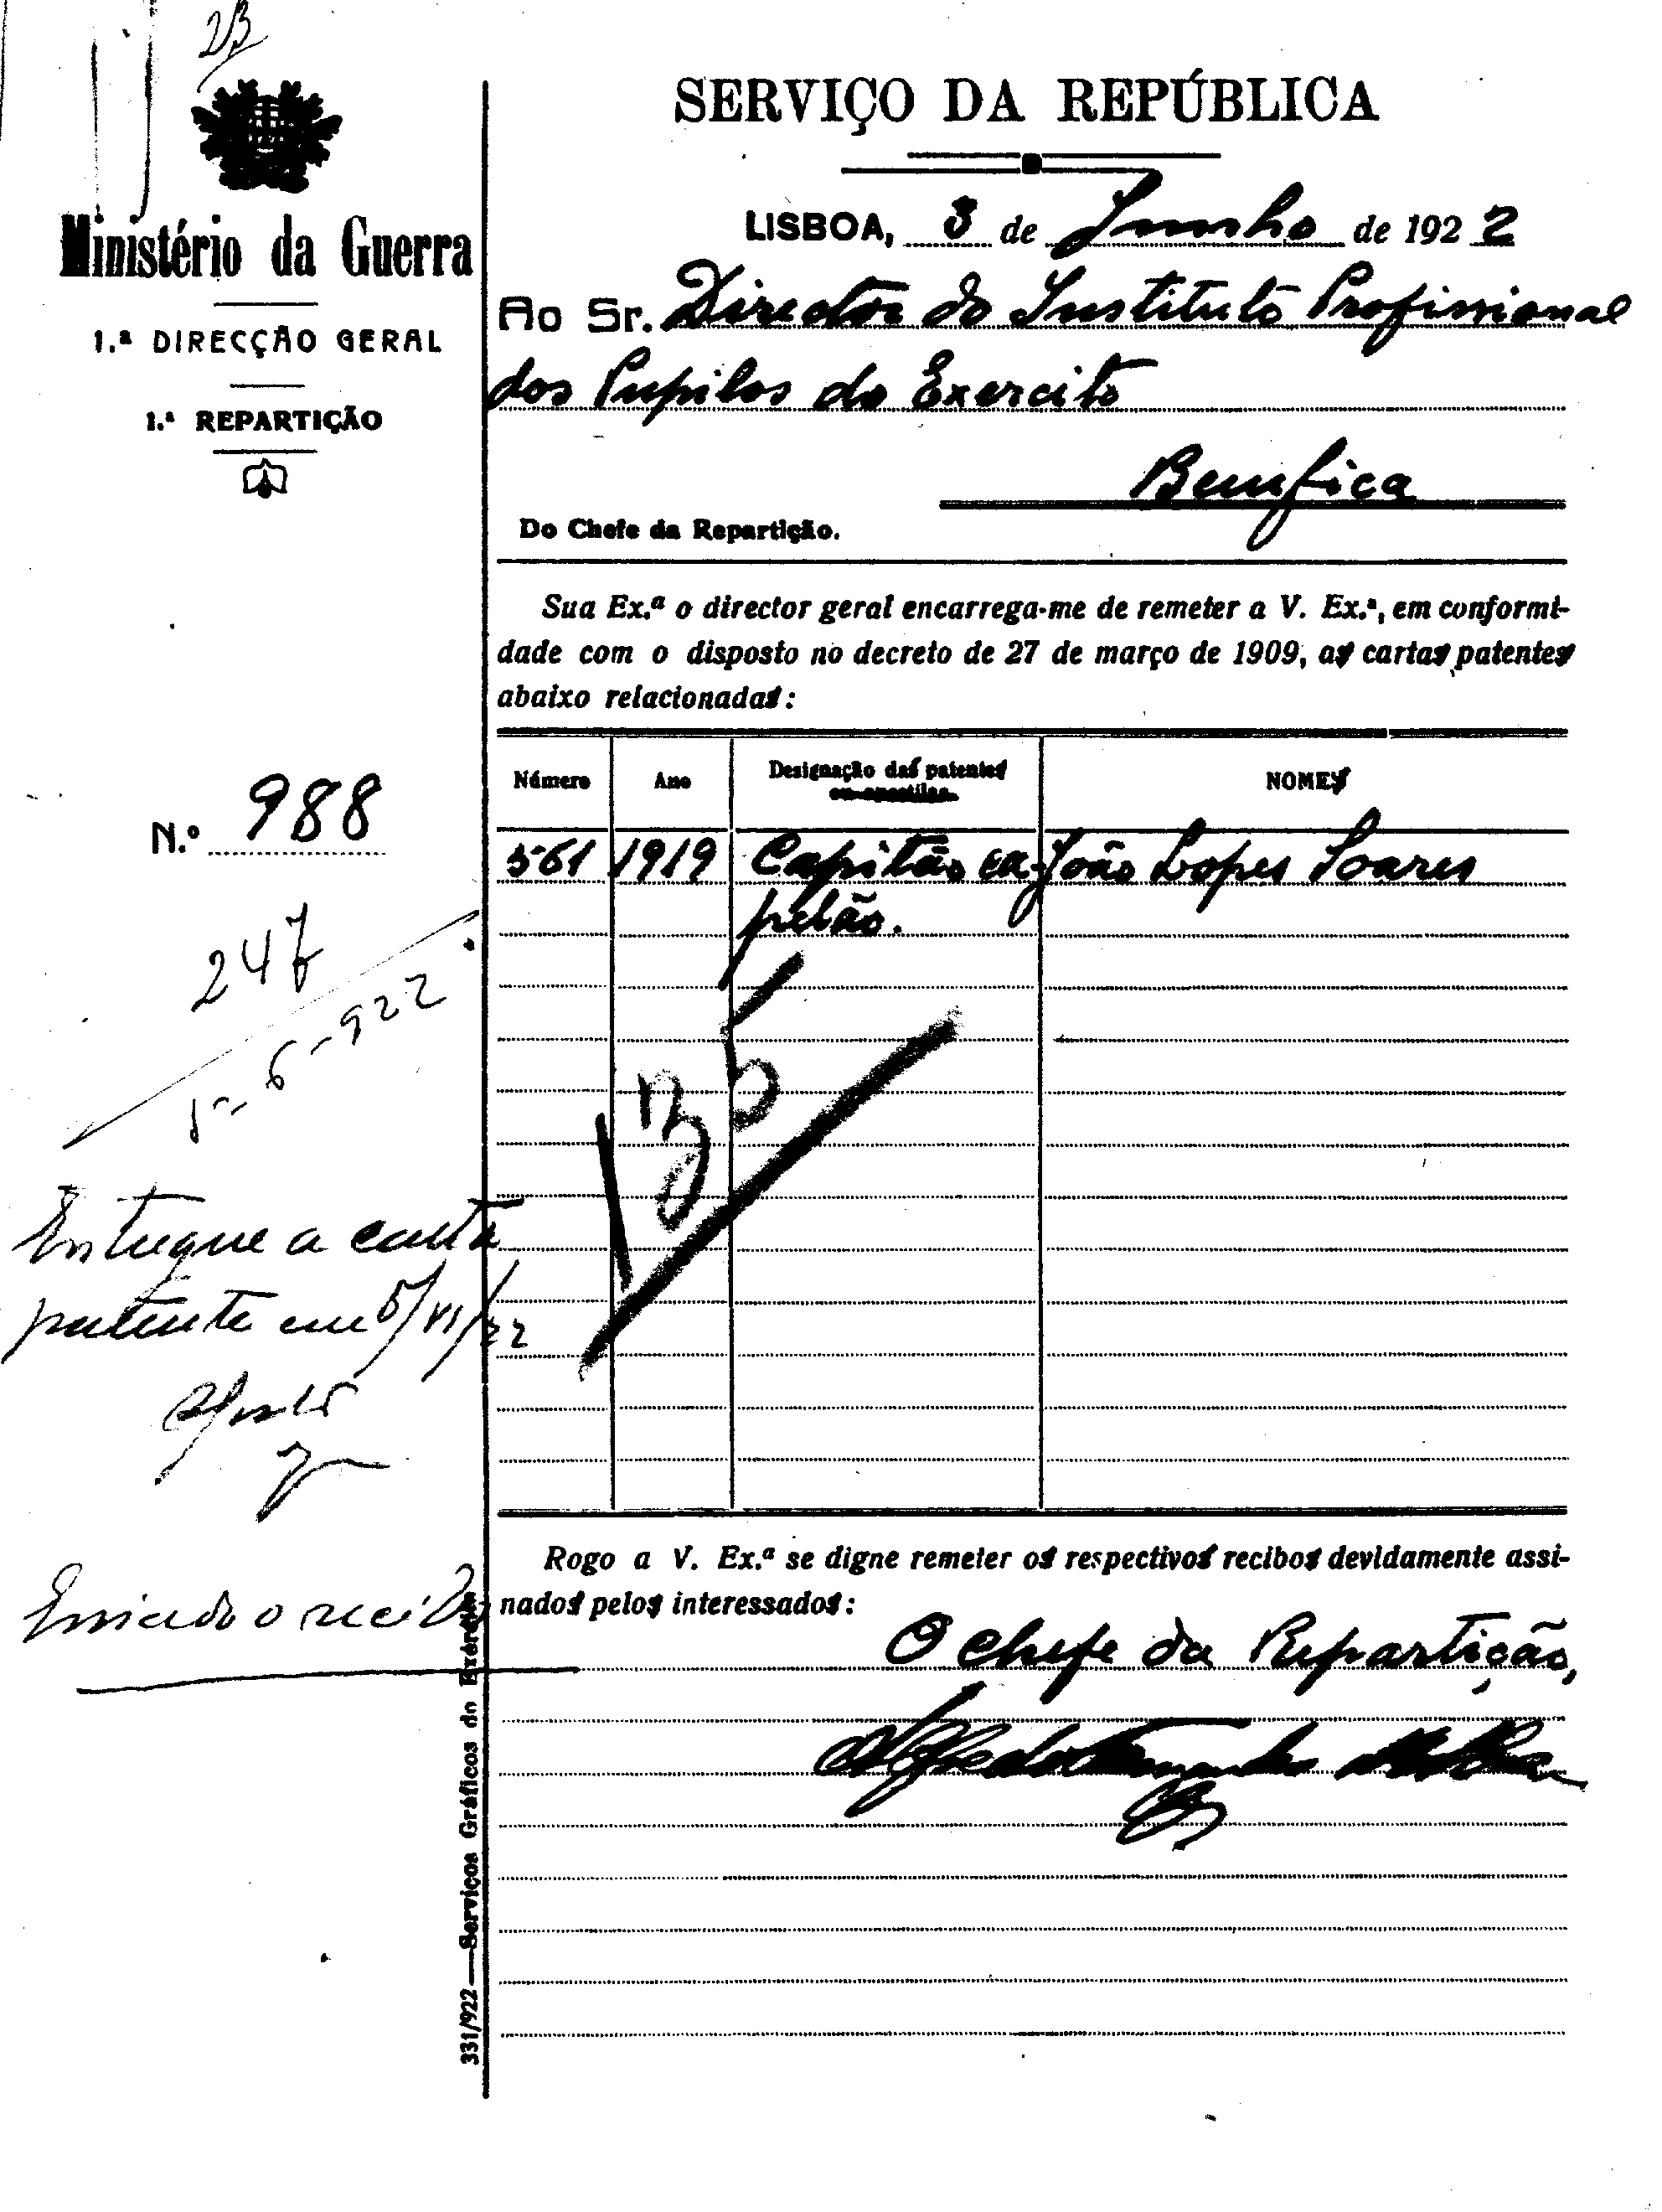 23
Ministério da Guerra
1.ª DIRECÇÃO GERAL
1.ª REPARTIÇÃO
SERVIÇO DA REPÚBLICA
LISBOA, 3 de Junho de 1922
Ao Sr. Director do Instituto Profissional
dos Pupilos do Exercito
Bemfica
Do Chefe da Repartição.
Sua Ex.ª o director geral encarrega-me de remeter a V. Ex.ª, em conformi-
dade com o disposto no decreto de 27 de março de 1909, as cartas patentes
abaixo relacionadas:
Número Ano Designação das patentes ou apostilas NOMES
561 1919 Capitão ca- João Lopes Soares
pelão.
N.º 988
247
5-6-922
135
Entregue a carta
patente em 5/VI/22
Enviado o recibo
Rogo a V. Ex.ª se digne remeter os respectivos recibos devidamente assi-
nados pelos interessados:
O Chefe da Repartição,
331/922—Serviços Gráficos do Exército